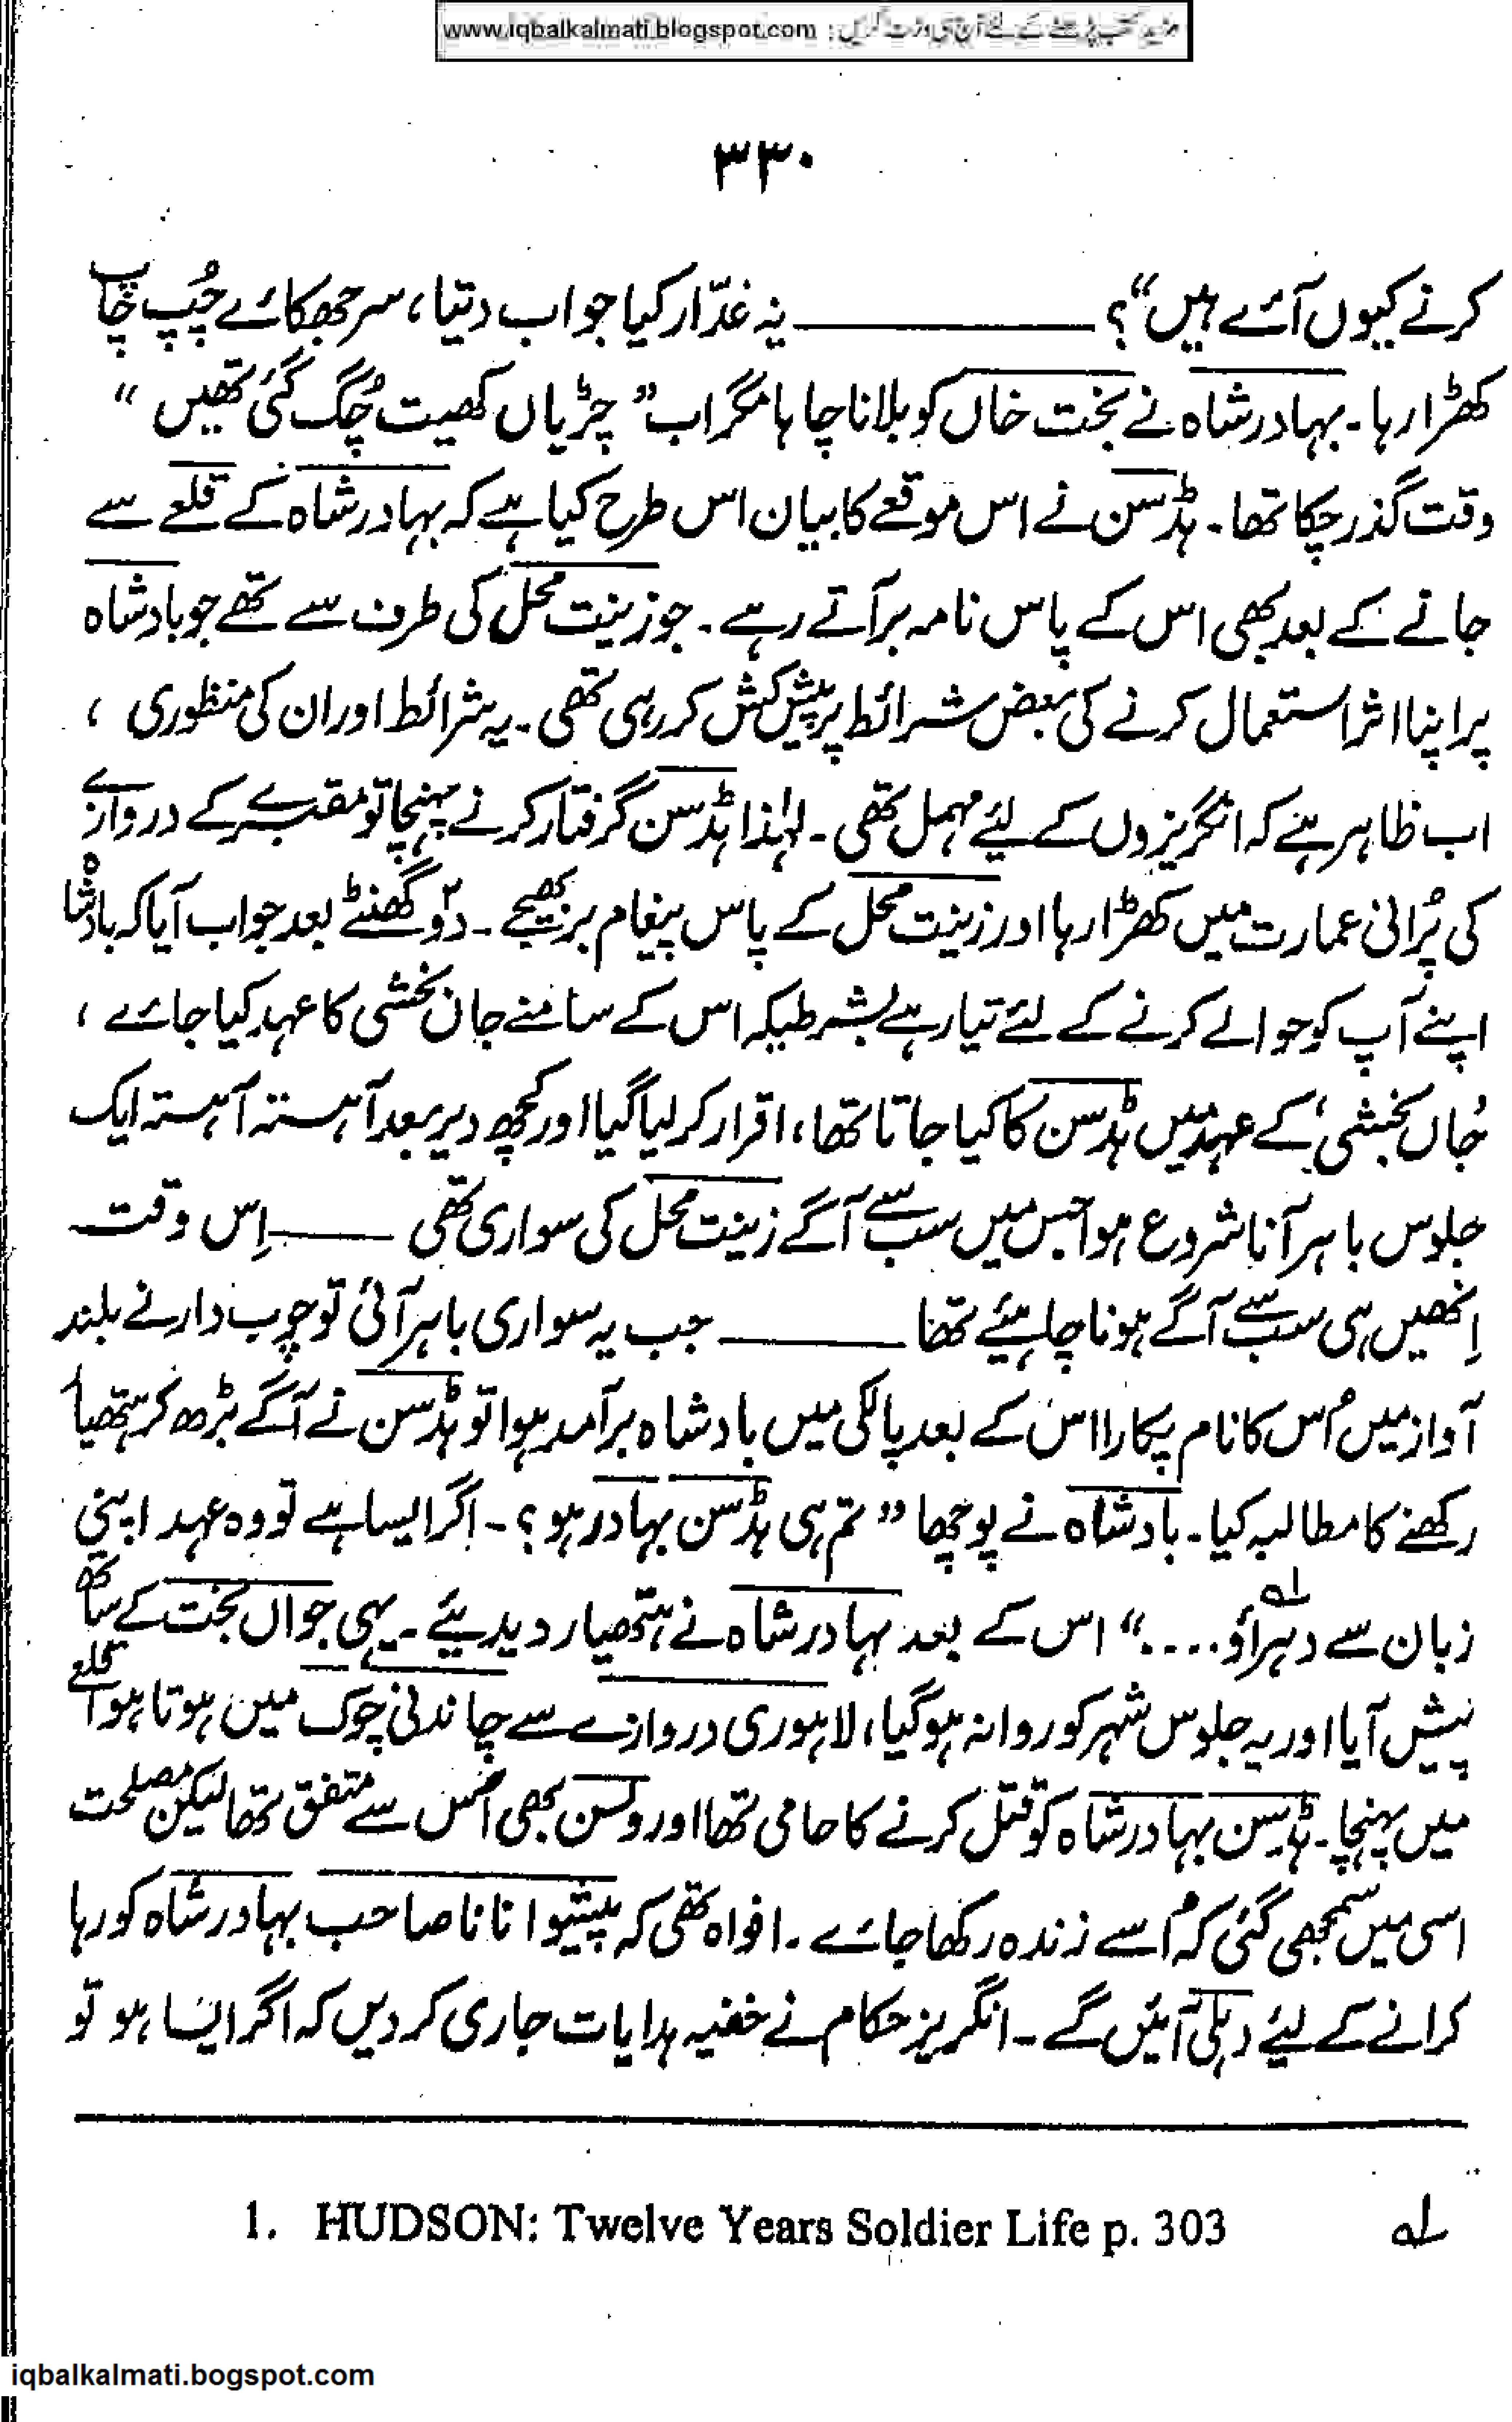 www.iqbalkalmati.blogspot.com : مزید کتب پڑھنے کے لئے آج ہی وزٹ کریں
۳۳۰
کرنے کیوں آئے ہیں“؟ ——— یہ غدّار کیا جواب دیتا، سر جھکائے چُپ چاپ
کھڑا رہا۔ بہادر شاہ نے بخت خاں کو بلانا چاہا مگر اب ”چڑیاں کھیت چُگ گئی تھیں“
وقت گذر چکا تھا۔ ہڈسن نے اس موقعے کا بیان اس طرح کیا ہے کہ بہادر شاہ کے قلعے سے
جانے کے بعد بھی اس کے پاس نامہ بر آتے رہے۔ جو زینت محل کی طرف سے تھے جو بادشاہ
پر اپنا اثر استعمال کرنے کی بعض شرائط پر پیش کش کر رہی تھی۔ یہ شرائط اور ان کی منظوری،
اب ظاہر ہے کہ انگریزوں کے لئے مہمل تھی۔ لہٰذا ہڈسن گرفتار کرنے پہنچا تو مقبرے کے دروازے
کی پُرانی عمارت میں کھڑا رہا اور زینت محل کے پاس پیغام بر بھیجے۔ دو۲ گھنٹے بعد جواب آیا کہ بادشاہ
اپنے آپ کو حوالے کرنے کے لئے تیار ہے بشرطیکہ اس کے سامنے جان بخشی کا عہد کیا جائے،
’جاں بخشی‘ کے عہد میں ہڈسن کا کیا جاتا تھا، اقرار کر لیا گیا اور کچھ دیر بعد آہستہ آہستہ ایک
جلوس باہر آنا شروع ہوا جس میں سب سے آگے زینت محل کی سواری تھی ——— اِس وقت
اِنھیں ہی سب سے آگے ہونا چاہئیے تھا ——— جب یہ سواری باہر آئی تو چوب دار نے بلند
آواز میں اُس کا نام پکارا اس کے بعد پالکی میں بادشاہ برآمد ہوا تو ہڈسن نے آگے بڑھ کر ہتھیار
رکھنے کا مطالبہ کیا۔ بادشاہ نے پوچھا ”تم ہی ہڈسن بہادر ہو؟۔ اگر ایسا ہے تو وہ عہد اپنی
زبان سے دہراؤ....“ ؎۱ اس کے بعد بہادر شاہ نے ہتھیار دیدیئے۔ یہی جواں بخت کے ساتھ
پیش آیا اور یہ جلوس شہر کو روانہ ہو گیا، لاہوری دروازے سے چاندنی چوک میں ہوتا ہوا قلعے
میں پہنچا۔ ہڈسن بہادر شاہ کو قتل کرنے کا حامی تھا اور ولسن بھی اُس سے متفق تھا لیکن مصلحت
اسی میں سمجھی گئی کہ اُسے زندہ رکھا جائے۔ افواہ تھی کہ پیشوا نانا صاحب بہادر شاہ کو رہا
کرانے کے لئے دہلی آئیں گے۔ انگریز حکام نے خفیہ ہدایات جاری کر دیں کہ اگر ایسا ہو تو
؎۱ 1. HUDSON: Twelve Years Soldier Life p. 303
iqbalkalmati.bogspot.com